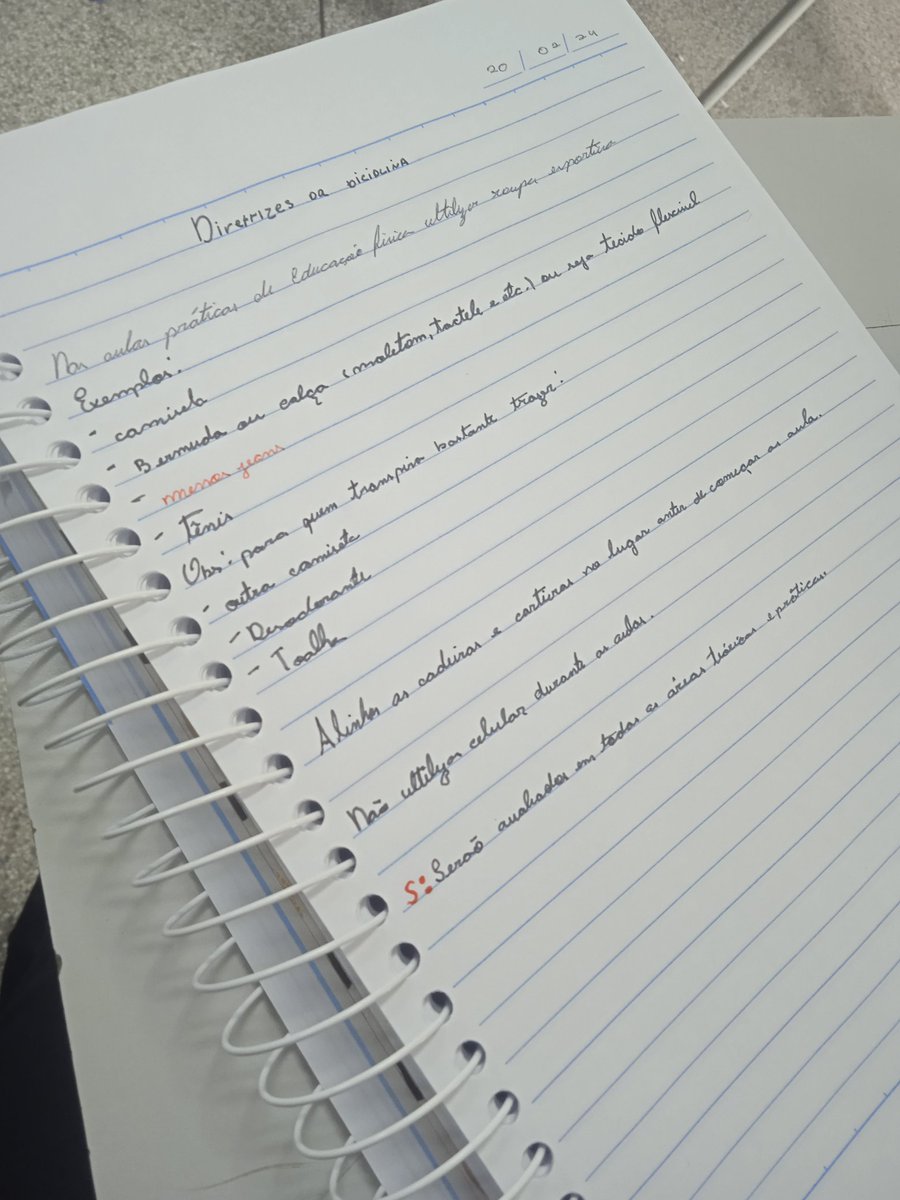 20/02/24
Diretrizes da diciplina
Nas aulas práticas de Educação física ultilizar roupa esportiva
Exemplos:
- camiseta
- Bermuda ou calça (moletom, tactele e etc.) ou seja tecido flexivel
- menos jeans
- Tênis
Obs: para quem transpira bastante trazer:
- outra camiseta
- Desodorante
- Toalha
Alinhar as cadeiras e carteiras no lugar antes de começar as aula.
Não ultilizar celular durante as aulas.
S: Serão avaliados em todas as áreas teóricas e práticas.